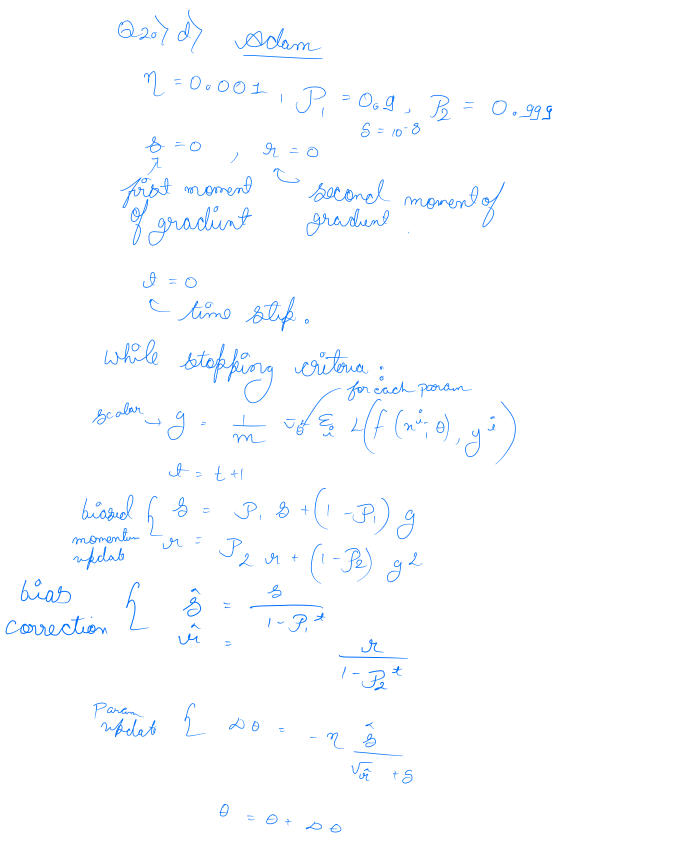 Q20) d) Adam
η = 0.001, P₁ = 0.9, P₂ = 0.999
δ = 10⁻⁸
s = 0, r = 0
first moment of gradient
second moment of gradient.
t = 0
time step.
while stopping criteria:
for each param
scalar → g = 1/m ∇θ Σᵢ L(f(xⁱ, θ), yⁱ)
t = t+1
biased momentum updat { s = P₁ s + (1 - P₁) g
r = P₂ r + (1 - P₂) g²
bias correction { ŝ = s / (1 - P₁ᵗ)
r̂ = r / (1 - P₂ᵗ)
Param updat { Δθ = - η ŝ / (√r̂ + δ)
θ = θ + Δθ